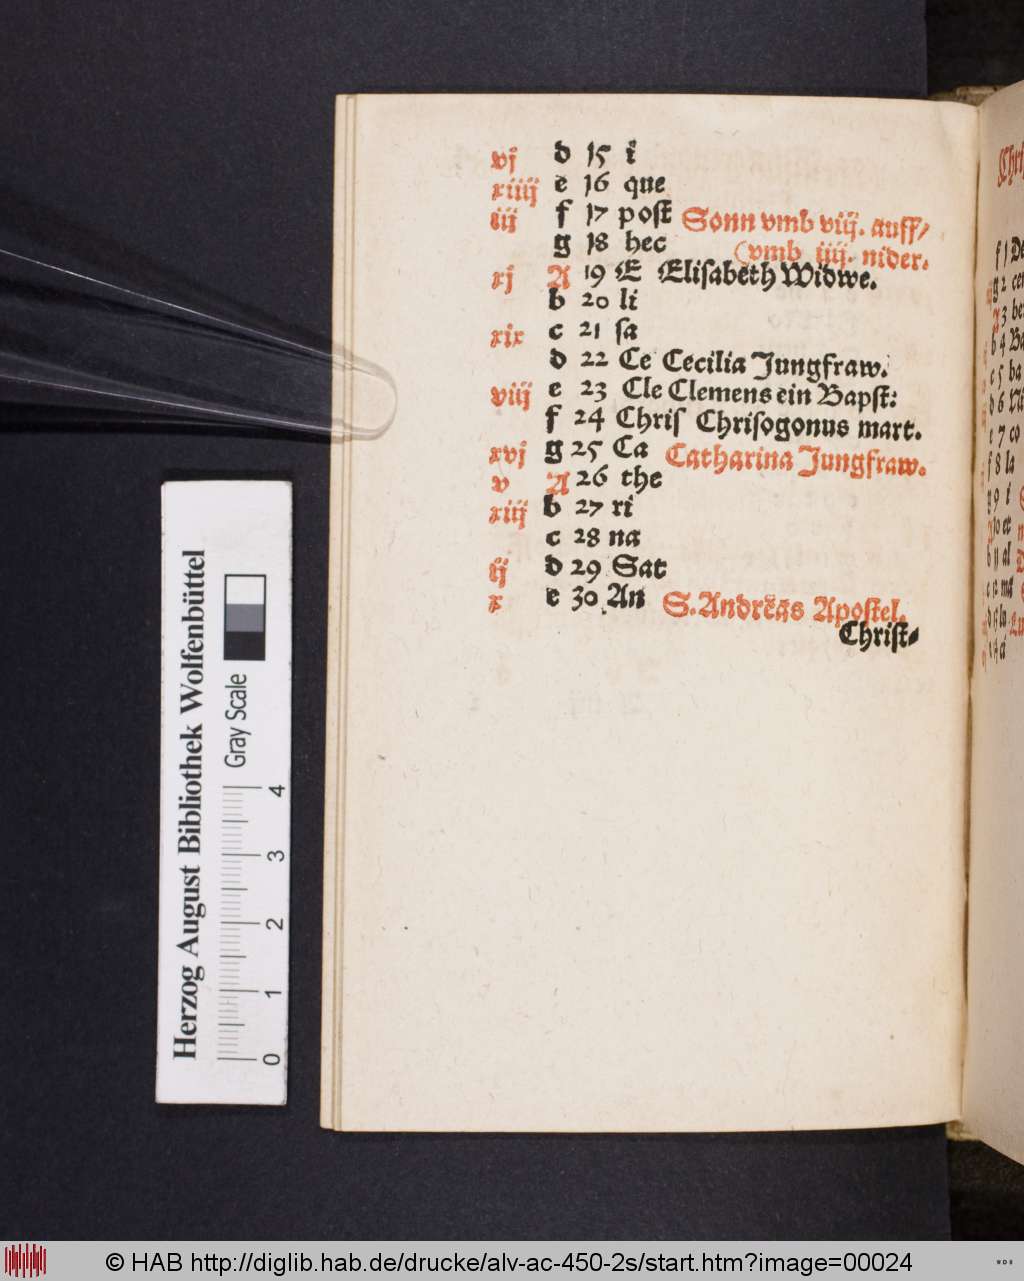 vj d 15 i
xiiij e 16 que
iij f 17 post Sonn vmb viij. auff/
g 18 hec (vmb iiij. nider.
xj A 19 E Elisabeth Widwe.
b 20 li
xix c 21 sa
d 22 Ce Cecilia Jungfraw.
viij e 23 Cle Clemens ein Bapst:
f 24 Chris Chrisogonus mart.
xvj g 25 Ca Catharina Jungfraw.
v A 26 the
xiij b 27 ri
c 28 na
ij d 29 Sat
x e 30 An S. Andreas Apostel.
Christ-
f 1 De
g 2 cem
A 3 ber
b 4 Ba
c 5 ba
d 6 Ni
e 7 co
f 8 la
g 9 i
10 et
b 11 al
Herzog August Bibliothek Wolfenbüttel
Gray Scale
0 1 2 3 4
© HAB http://diglib.hab.de/drucke/alv-ac-450-2s/start.htm?image=00024